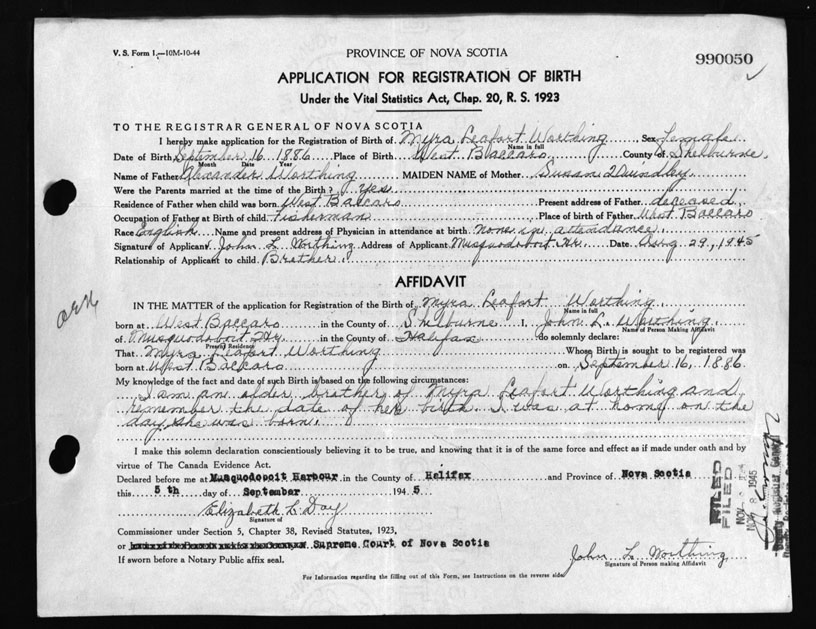 V. S. Form 1.—10M-10-44
PROVINCE OF NOVA SCOTIA
990050
APPLICATION FOR REGISTRATION OF BIRTH
Under the Vital Statistics Act, Chap. 20, R. S. 1923
TO THE REGISTRAR GENERAL OF NOVA SCOTIA
I hereby make application for the Registration of Birth of Myra Leafort Worthing Sex Female
Name in full
Date of Birth September 16 1886 Place of Birth West Baccaro County of Shelburne
Month Date Year
Name of Father Alexander Worthing MAIDEN NAME of Mother Susan
Were the Parents married at the time of the Birth? Yes
Residence of Father when child was born West Baccaro Present address of Father deceased
Occupation of Father at Birth of child Fisherman Place of birth of Father West Baccaro
Race English Name and present address of Physician in attendance at birth none in attendance
Signature of Applicant John L. Worthing Address of Applicant Musquodoboit Hr. Date Aug 29, 1945
Relationship of Applicant to child Brother
AFFIDAVIT
IN THE MATTER of the application for Registration of the Birth of Myra Leafort Worthing
Name in full
born at West Baccaro in the County of Shelburne I, John L. Worthing
Name of Person Making Affidavit
of Musquodoboit Hr. in the County of Halifax do solemnly declare:
Present Residence
That Myra Leafort Worthing Whose Birth is sought to be registered was
born at West Baccaro on September 16, 1886
My knowledge of the fact and date of such Birth is based on the following circumstances:
I am an older brother of Myra Leafort Worthing and
remember the date of her birth. I was at home on the
day she was born.
I make this solemn declaration conscientiously believing it to be true, and knowing that it is of the same force and effect as if made under oath and by
virtue of The Canada Evidence Act.
Declared before me at Musquodoboit Harbour in the County of Halifax and Province of Nova Scotia
this 5th day of September 1945
Elizabeth L Day
Signature of
Commissioner under Section 5, Chapter 38, Revised Statutes, 1923,
or Supreme Court of Nova Scotia
If sworn before a Notary Public affix seal.
John L. Worthing
Signature of Person making Affidavit
For Information regarding the filling out of this Form, see Instructions on the reverse side.
FILED
FILED
NOV 8 1945